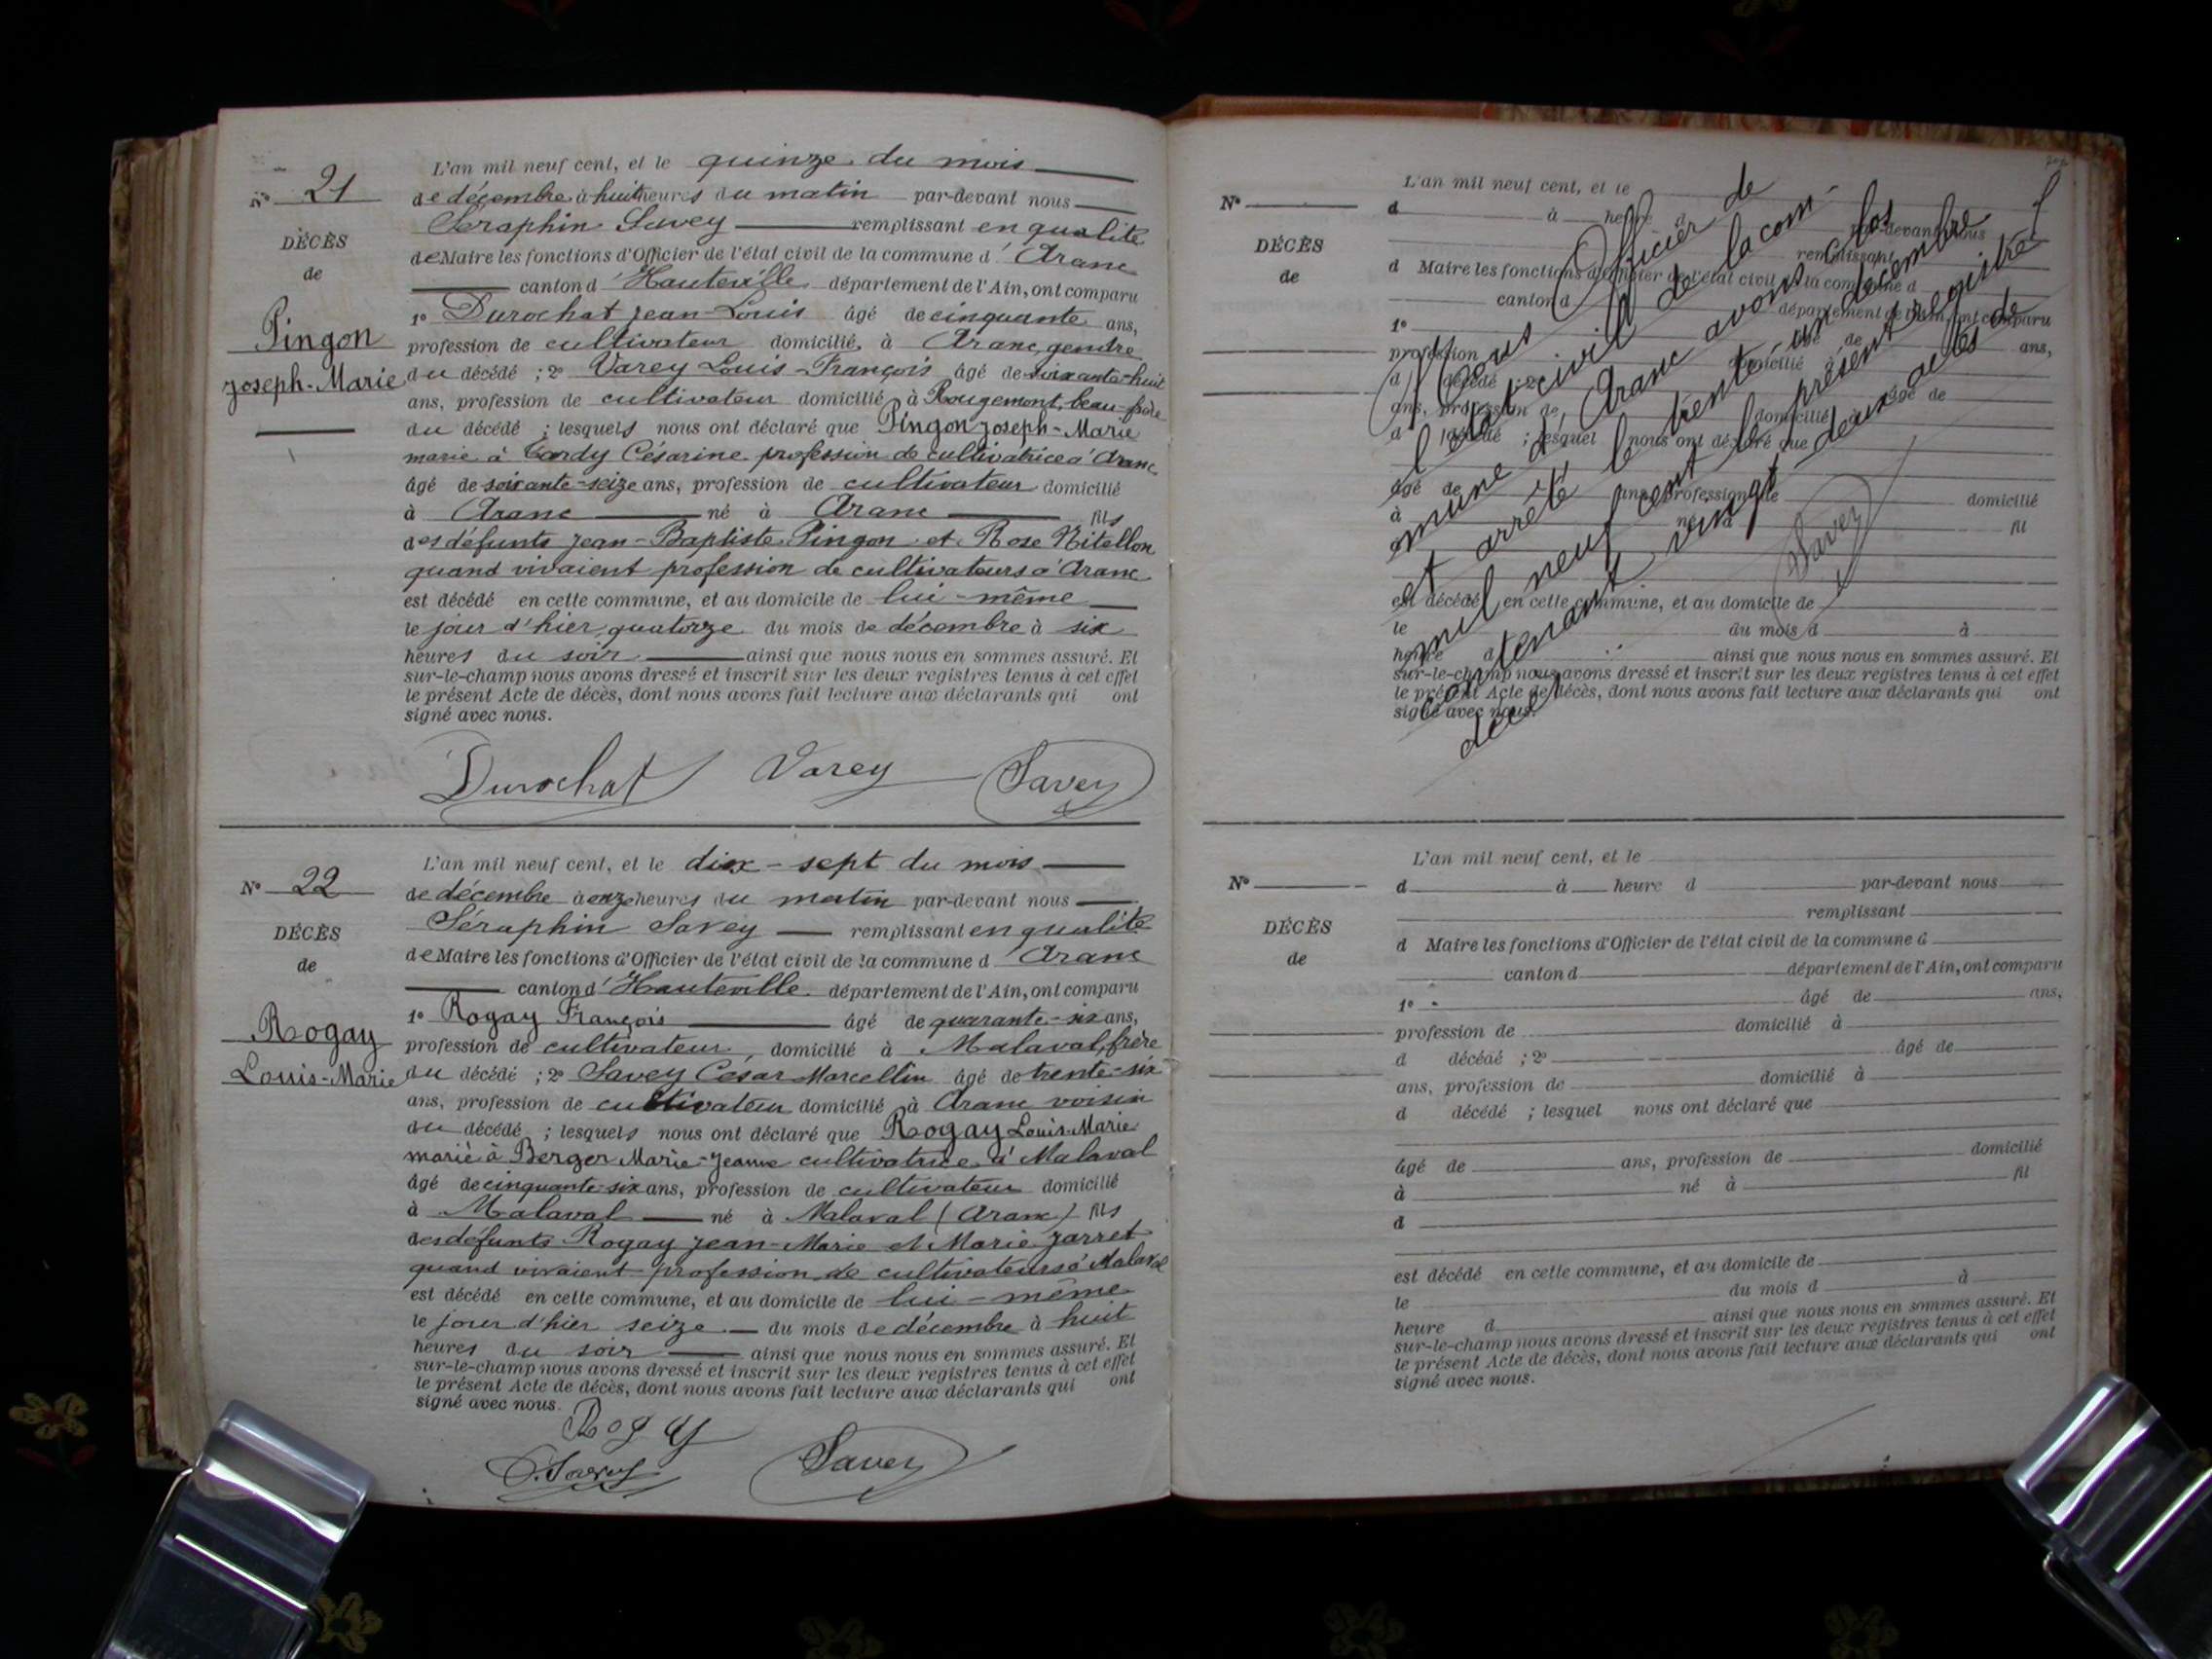 N° 21
DÉCÈS
de
Pingon
Joseph-Marie
L'an mil neuf cent, et le quinze du mois
de décembre à huit heures du matin par-devant nous
Séraphin Savey remplissant en qualité
de Maire les fonctions d'Officier de l'état civil de la commune d'Aranc
canton d'Hauteville département de l'Ain, ont comparu
1° Durochat Jean-Louis âgé de cinquante ans,
profession de cultivateur domicilié à Aranc, gendre
du décédé ; 2° Varey Louis-François âgé de soixante-huit
ans, profession de cultivateur domicilié à Rougemont, beau-frère
du décédé ; lesquels nous ont déclaré que Pingon Joseph-Marie
marié à Tardy Césarine profession de cultivatrice à Aranc
âgé de soixante-seize ans, profession de cultivateur domicilié
à Aranc né à Aranc fils
des défunts Jean-Baptiste Pingon et Rose
quand vivaient profession de cultivateurs à Aranc
est décédé en cette commune, et au domicile de lui-même
le jour d'hier quatorze du mois de décembre à six
heures du soir ainsi que nous nous en sommes assuré. Et
sur-le-champ nous avons dressé et inscrit sur les deux registres tenus à cet effet
le présent Acte de décès, dont nous avons fait lecture aux déclarants qui ont
signé avec nous.
Durochat Varey Savey
N° 22
DÉCÈS
de
Rogay
Louis-Marie
L'an mil neuf cent, et le dix-sept du mois
de décembre à onze heures du matin par-devant nous
Séraphin Savey remplissant en qualité
de Maire les fonctions d'Officier de l'état civil de la commune d'Aranc
canton d'Hauteville département de l'Ain, ont comparu
1° Rogay François âgé de quarante-six ans,
profession de cultivateur domicilié à Malaval, frère
du décédé ; 2° Savey César Marcellin âgé de trente-six
ans, profession de cultivateur domicilié à Aranc voisin
du décédé ; lesquels nous ont déclaré que Rogay Louis-Marie
marié à Berger Marie-Jeanne cultivatrice à Malaval
âgé de cinquante-six ans, profession de cultivateur domicilié
à Malaval né à Malaval (Aranc) fils
des défunts Rogay Jean-Marie et Marie Jarret
quand vivaient profession de cultivateurs à Malaval
est décédé en cette commune, et au domicile de lui-même
le jour d'hier seize du mois de décembre à huit
heures du soir ainsi que nous nous en sommes assuré. Et
sur-le-champ nous avons dressé et inscrit sur les deux registres tenus à cet effet
le présent Acte de décès, dont nous avons fait lecture aux déclarants qui ont
signé avec nous.
Rogay
C. Savey Savey
N°
DÉCÈS
de
L'an mil neuf cent, et le
d à heure d par-devant nous
remplissant
d Maire les fonctions d'Officier de l'état civil de la commune d
canton d département de l'Ain, ont comparu
1° âgé de ans,
profession domicilié à
d décédé ; 2° âgé de
ans, profession de domicilié à
d décédé ; lesquel nous ont déclaré que
âgé de ans, profession de domicilié
à né à fil
d
est décédé en cette commune, et au domicile de
le du mois d à
heure d ainsi que nous nous en sommes assuré. Et
sur-le-champ nous avons dressé et inscrit sur les deux registres tenus à cet effet
le présent Acte de décès, dont nous avons fait lecture aux déclarants qui ont
signé avec nous.
Nous Officier de
l'état civil de la com
mune d'Aranc avons clos
et arrêté le trente un décembre
mil neuf cent le présent registre
contenant vingt deux actes de
décès
Savey
N°
DÉCÈS
de
L'an mil neuf cent, et le
d à heure d par-devant nous
remplissant
d Maire les fonctions d'Officier de l'état civil de la commune d
canton d département de l'Ain, ont comparu
1° âgé de ans,
profession de domicilié à
d décédé ; 2° âgé de
ans, profession de domicilié à
d décédé ; lesquel nous ont déclaré que
âgé de ans, profession de domicilié
à né à fil
d
est décédé en cette commune, et au domicile de
le du mois d à
heure d ainsi que nous nous en sommes assuré. Et
sur-le-champ nous avons dressé et inscrit sur les deux registres tenus à cet effet
le présent Acte de décès, dont nous avons fait lecture aux déclarants qui ont
signé avec nous.